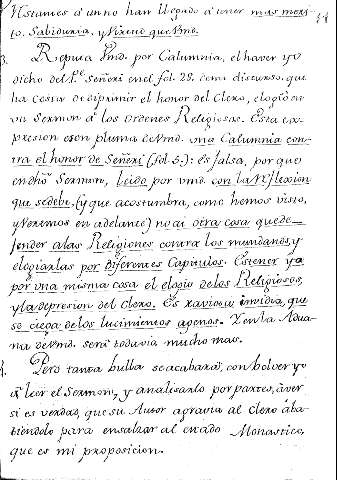 Vstantes á un no han llegado á tener mas meri-
to, Sabiduria, y Virtud que Vmd.
3. Reputa Vmd. por Calumnia, el haver yo
dicho del P.e Señeri en el fol. 28. como discurso, que
ha costa de deprimir el honor del Clero, elogió en
un Sermon á los Ordenes Religiosos. Esta ex-
presion es en pluma de Vmd. una Calumnia con-
tra el honor de Señeri (fol. 5.): es falsa, por que
en dho Sermon, Leido por Vmd. con la reflexion
que se debe, (y que acostumbra, como hemos visto,
y Veremos en adelante) no ai otra cosa que de-
fender a las Religiones contra los mundanos, y
elogiarlas por diferentes Capitulos. Es tener ya
por una misma cosa el elogio de los Religiosos,
y la depresion del Clero. Es raviosa invidia, que
se ciega de los lucimientos agenos. Y en la Adua-
na de Vmd. será todavia mucho mas.
4. Pero tanta bulla se acabará, con bolver yo
á leér el Sermon, y analizarlo por partes, á ver
si es verdad, que su Autor agravia al Clero aba-
tiendolo para ensalzar al estado Monastico,
que es mi proposicion.